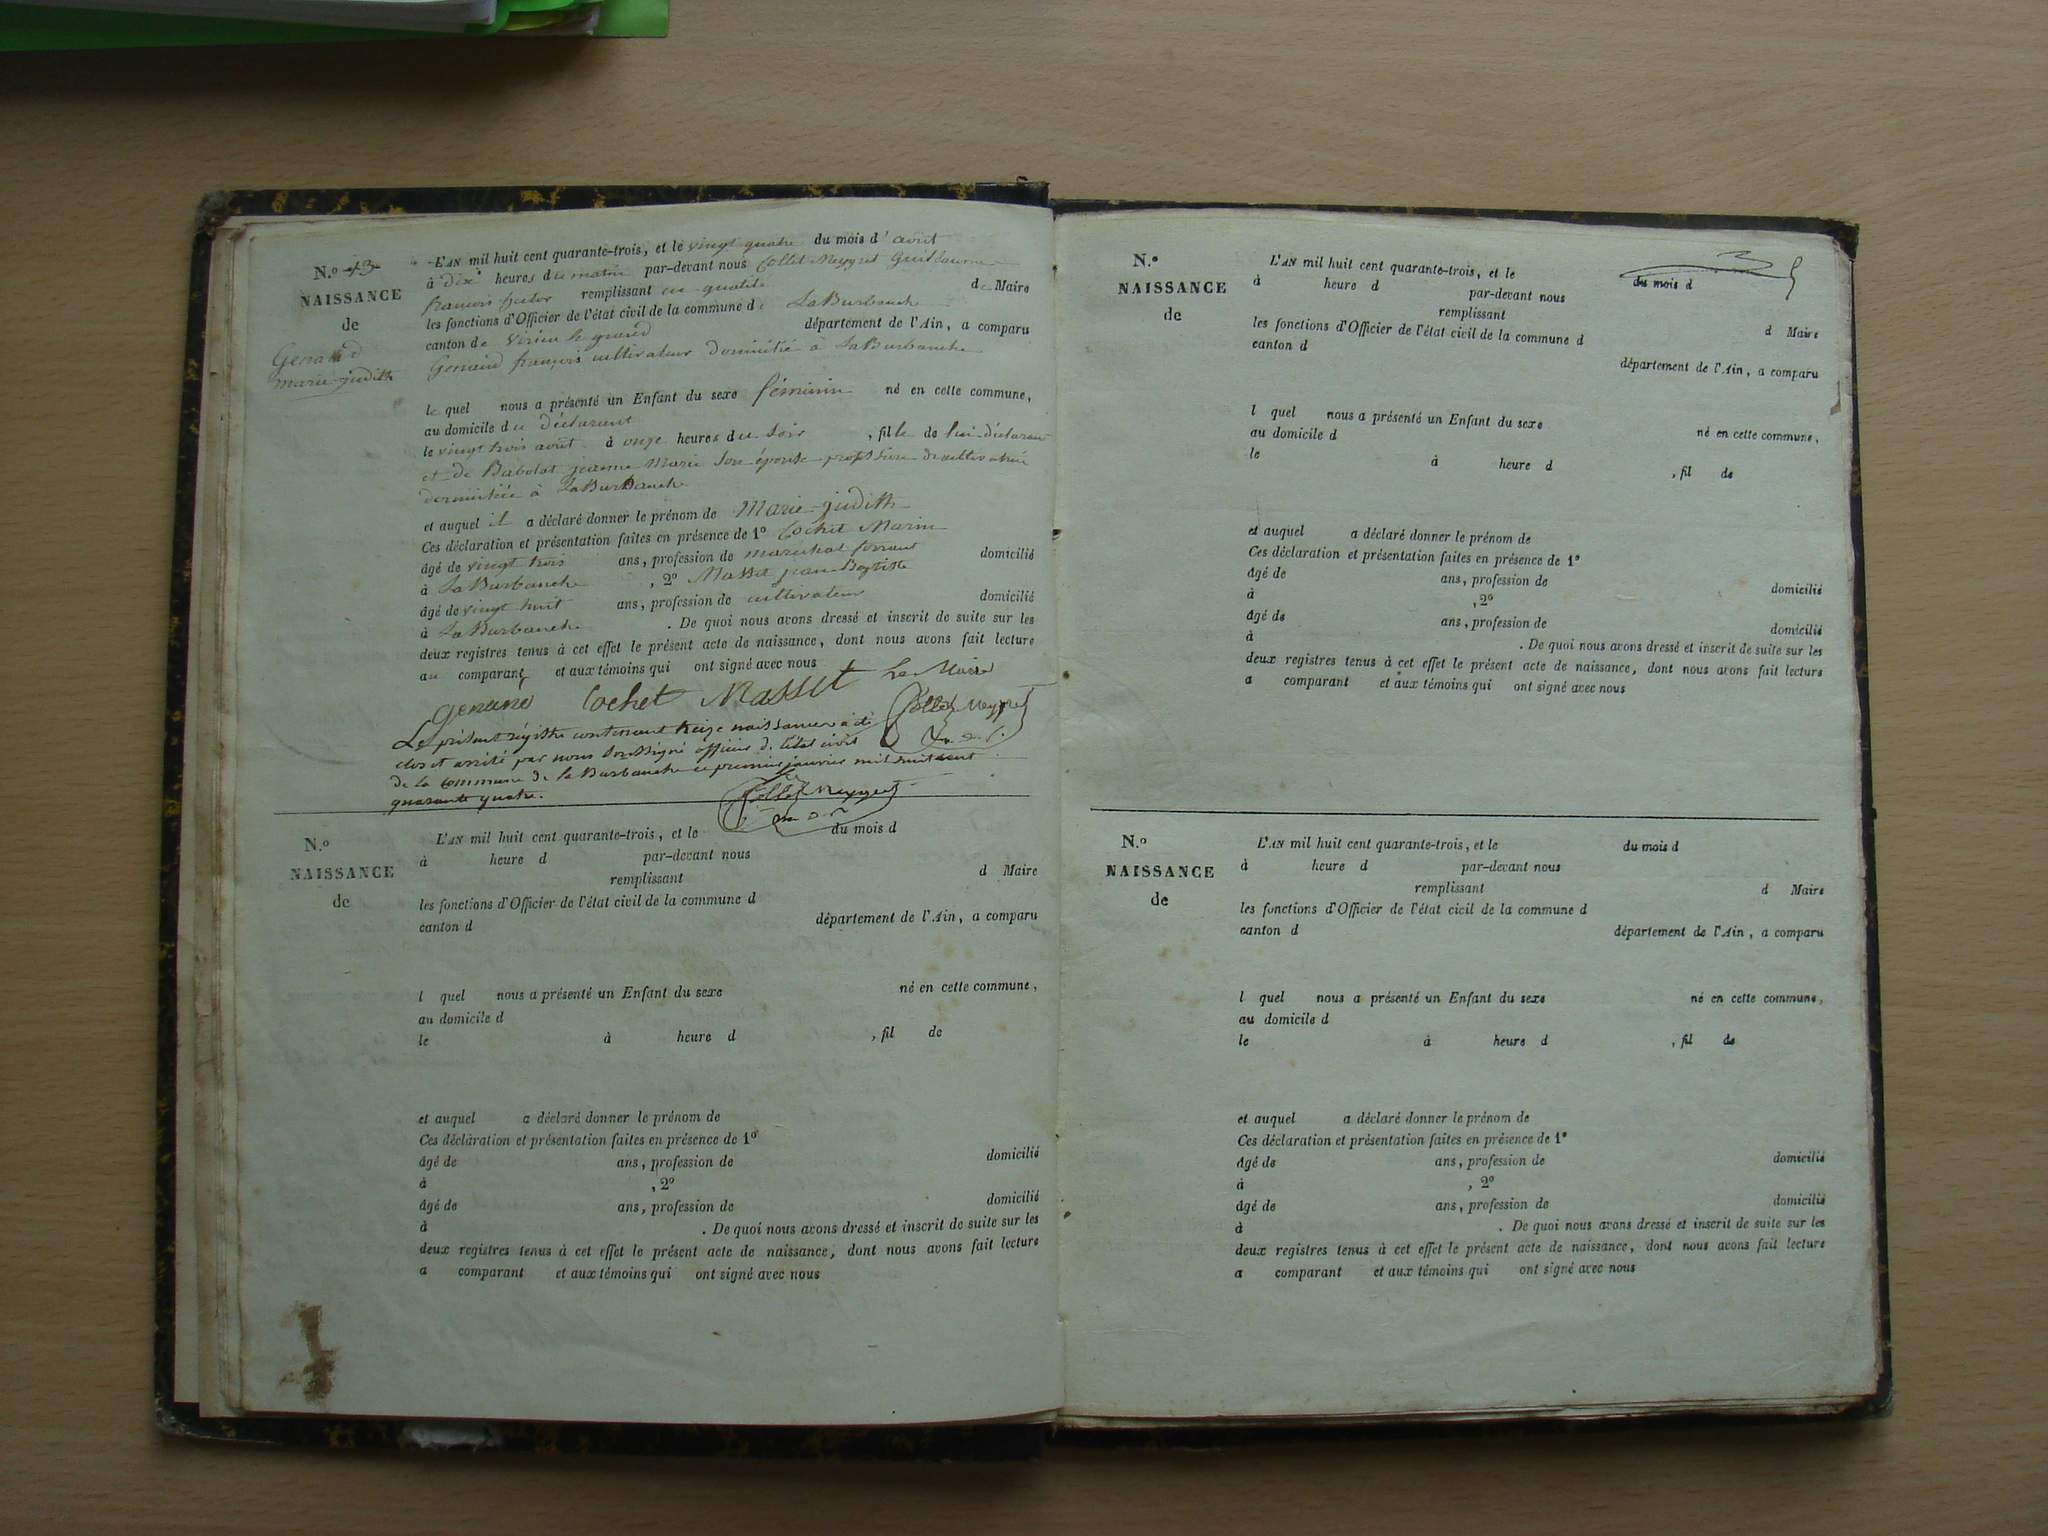 N.o 13
NAISSANCE
de
Genaud
marie-judith
L'AN mil huit cent quarante-trois, et le vingt quatre du mois d'août
à dix heures du matin par-devant nous Collet-Meygret Guillaume
françois hector remplissant en qualité de Maire
les fonctions d'Officier de l'état civil de la commune de LaBurbanche
canton de Virieu le grand département de l'Ain, a comparu
Genaud françois cultivateur domicilié à LaBurbanche
le quel nous a présenté un Enfant du sexe féminin né en cette commune,
au domicile du déclarant
le vingt trois août à onze heures du soir, fille de lui déclarant
et de Babolat jeanne Marie son épouse profession de cultivatrice
domiciliée à LaBurbanche
et auquel il a déclaré donner le prénom de Marie-judith
Ces déclaration et présentation faites en présence de 1º Cochet Marin
âgé de vingt trois ans, profession de maréchal ferrant domicilié
à LaBurbanche, 2º Masset jean-Baptiste
âgé de vingt huit ans, profession de cultivateur domicilié
à LaBurbanche. De quoi nous avons dressé et inscrit de suite sur les
deux registres tenus à cet effet le présent acte de naissance, dont nous avons fait lecture
au comparant et aux témoins qui ont signé avec nous
Genand Cochet Masset Le Maire
Collet Meygret
Le présent régistre contenant treize naissances a été
clos et arrêté par nous soussigné officier de l'état civil
de la commune de la Burbanche ce premier janvier mil huit cent
quarante quatre.
Collet Meygret
N.o
NAISSANCE
de
L'AN mil huit cent quarante-trois, et le du mois d
à heure d par-devant nous
remplissant d Maire
les fonctions d'Officier de l'état civil de la commune d
canton d département de l'Ain, a comparu
l quel nous a présenté un Enfant du sexe né en cette commune,
au domicile d
le à heure d , fil de
et auquel a déclaré donner le prénom de
Ces déclaration et présentation faites en présence de 1º
âgé de ans, profession de domicilié
à , 2º
âgé de ans, profession de domicilié
à . De quoi nous avons dressé et inscrit de suite sur les
deux registres tenus à cet effet le présent acte de naissance, dont nous avons fait lecture
a comparant et aux témoins qui ont signé avec nous
N.o
NAISSANCE
de
L'AN mil huit cent quarante-trois, et le du mois d
à heure d par-devant nous
remplissant d Maire
les fonctions d'Officier de l'état civil de la commune d
canton d département de l'Ain, a comparu
l quel nous a présenté un Enfant du sexe né en cette commune,
au domicile d
le à heure d , fil de
et auquel a déclaré donner le prénom de
Ces déclaration et présentation faites en présence de 1º
âgé de ans, profession de domicilié
à , 2º
âgé de ans, profession de domicilié
à . De quoi nous avons dressé et inscrit de suite sur les
deux registres tenus à cet effet le présent acte de naissance, dont nous avons fait lecture
a comparant et aux témoins qui ont signé avec nous
N.o
NAISSANCE
de
L'AN mil huit cent quarante-trois, et le du mois d
à heure d par-devant nous
remplissant d Maire
les fonctions d'Officier de l'état civil de la commune d
canton d département de l'Ain, a comparu
l quel nous a présenté un Enfant du sexe né en cette commune,
au domicile d
le à heure d , fil de
et auquel a déclaré donner le prénom de
Ces déclaration et présentation faites en présence de 1º
âgé de ans, profession de domicilié
à , 2º
âgé de ans, profession de domicilié
à . De quoi nous avons dressé et inscrit de suite sur les
deux registres tenus à cet effet le présent acte de naissance, dont nous avons fait lecture
a comparant et aux témoins qui ont signé avec nous